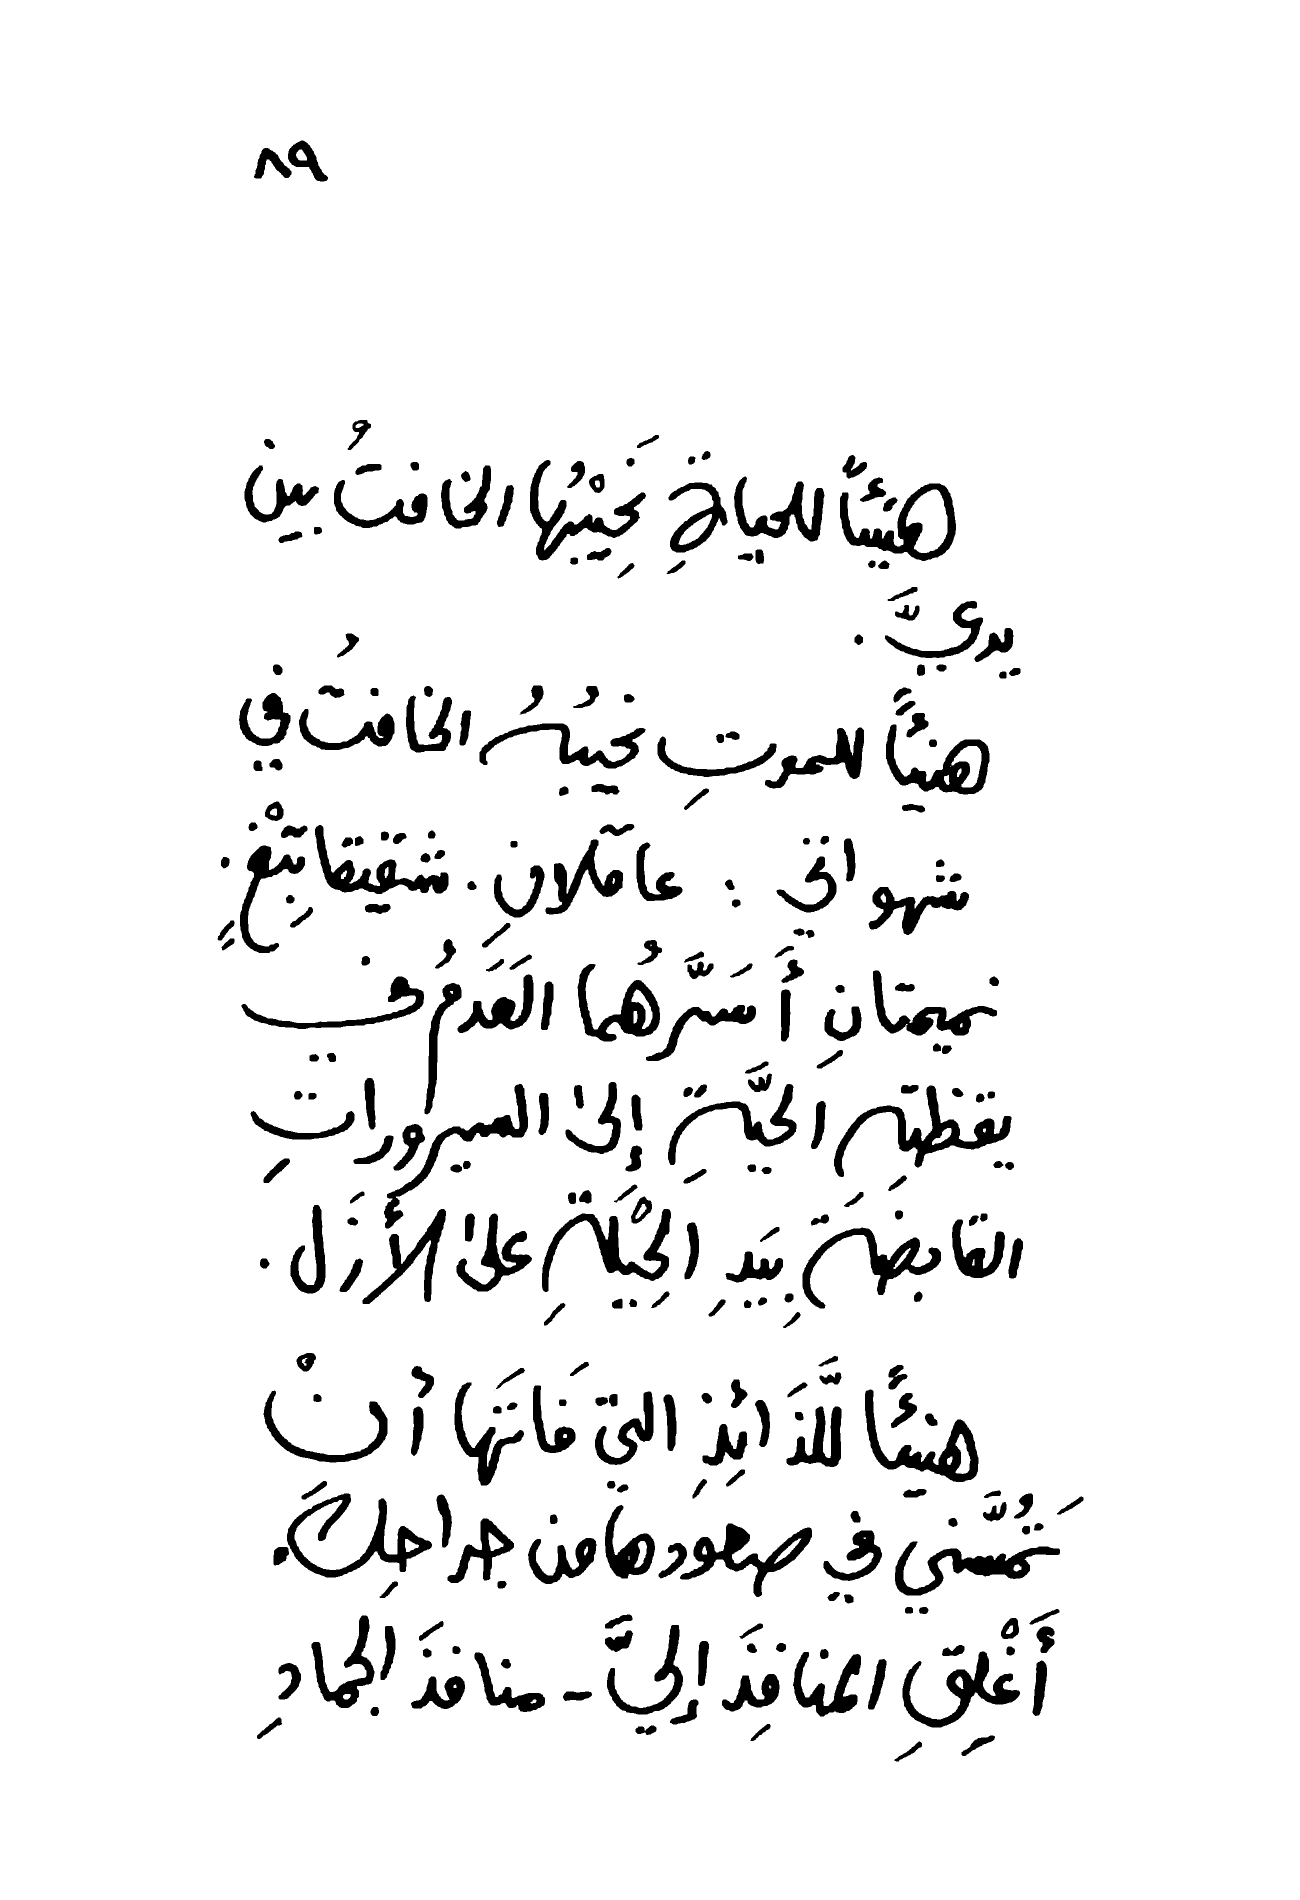 ٨٩
هنيئاً للحياةِ نَحِيْبُها الخافتُ بين
يديَّ .
هنيئاً للموتِ نحيبُهُ الخافتُ في
شهواتي : عاقلانِ . شقيقا تِبْغٍ .
نميمتانِ أَسَرَّهُما العَدَمُ في
يقظتهِ الحيَّةِ إلى السيروراتِ
القابضَةِ بِيَدِ الحِيْلَةِ على الأَزَل .
هنيئاً للَّذَائِذِ التي فَاتَها أنْ
تَمُسَّني في صعودها من جراحِكَ .
أَغْلِقِ المنافِذَ إليَّ - منافذَ الجمادِ